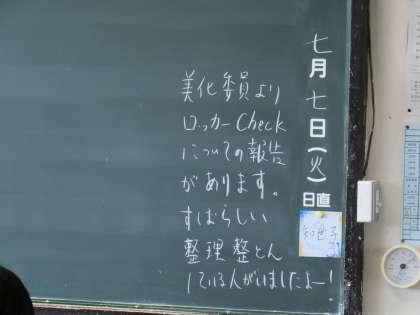 七月七日(火)
日直
知世子
美化委員より
ロッカーCheck
についての報告
があります。
すばらしい
整理整とん
している人がいましたよー!